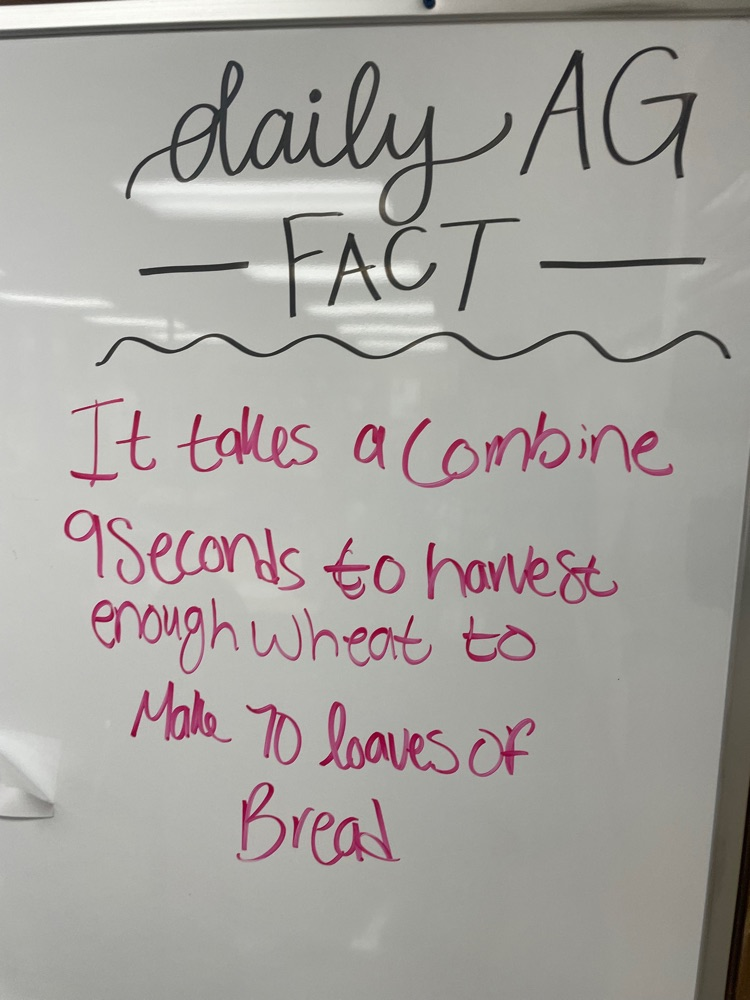 daily AG
— FACT —
It takes a Combine
9 Seconds to harvest
enough wheat to
Make 70 loaves of
Bread